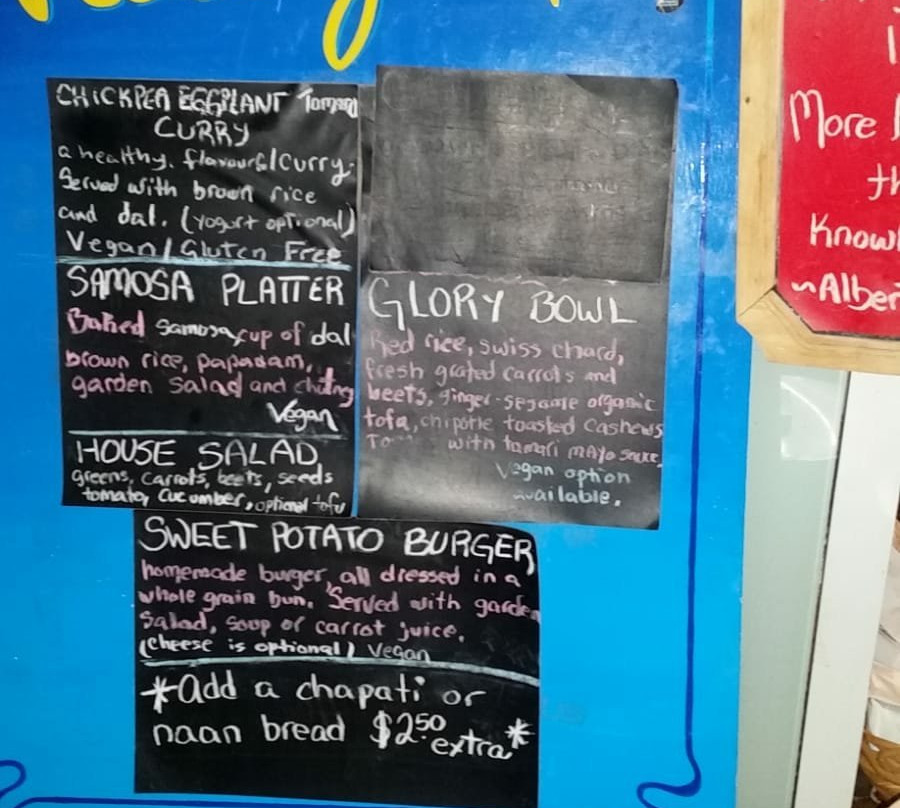 CHICKPEA EGGPLANT
CURRY
a healthy, flavourful curry.
Served with brown rice
and dal. (yogurt optional)
Vegan/Gluten Free
SAMOSA PLATTER
Baked Samosa, cup of dal
brown rice, papadam,
garden salad and chutney
Vegan
HOUSE SALAD
greens, carrots, beets, seeds
tomato, cucumber, optional tofu
GLORY BOWL
Red rice, swiss chard,
fresh grated carrots and
beets, ginger-sesame organic
tofu, chipotle toasted cashews
with tamari mayo sauce.
Vegan option
available.
SWEET POTATO BURGER
homemade burger, all dressed in a
whole grain bun. Served with garden
salad, soup or carrot juice.
(cheese is optional) Vegan
*Add a chapati or
naan bread $2.50 extra*
More
th
Know
~Alber